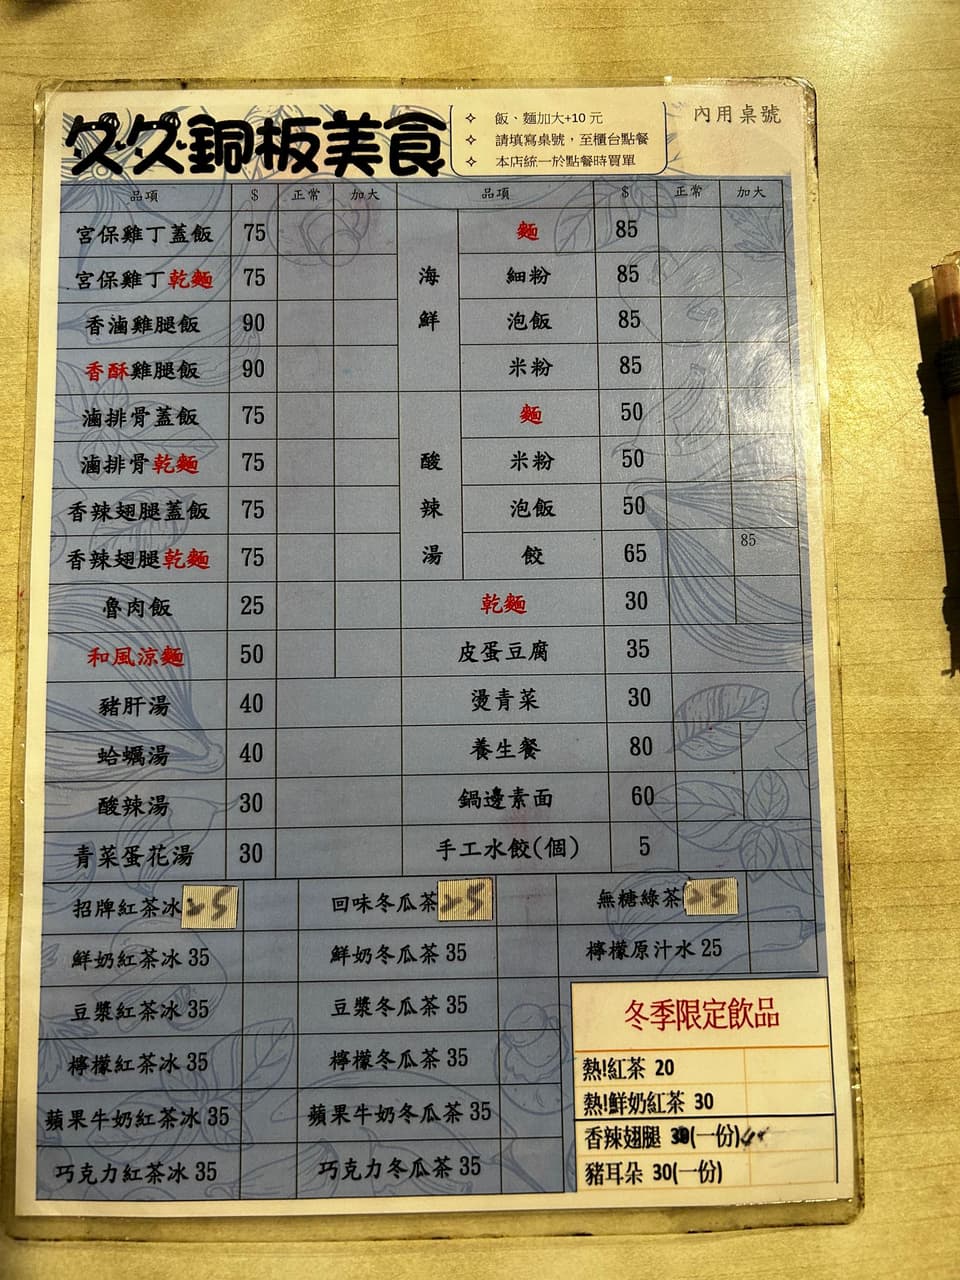 久久銅板美食
✧ 飯、麵加大+10 元
✧ 請填寫桌號，至櫃台點餐
✧ 本店統一於點餐時買單
內用桌號
品項 $ 正常 加大 品項 $ 正常 加大
宮保雞丁蓋飯 75
宮保雞丁乾麵 75
香滷雞腿飯 90
香酥雞腿飯 90
滷排骨蓋飯 75
滷排骨乾麵 75
香辣翅腿蓋飯 75
香辣翅腿乾麵 75
魯肉飯 25
和風涼麵 50
豬肝湯 40
蛤蠣湯 40
酸辣湯 30
青菜蛋花湯 30
海鮮
麵 85
細粉 85
泡飯 85
米粉 85
酸辣湯
麵 50
米粉 50
泡飯 50
餃 65 85
乾麵 30
皮蛋豆腐 35
燙青菜 30
養生餐 80
鍋邊素面 60
手工水餃(個) 5
招牌紅茶冰 25
鮮奶紅茶冰 35
豆漿紅茶冰 35
檸檬紅茶冰 35
蘋果牛奶紅茶冰 35
巧克力紅茶冰 35
回味冬瓜茶 25
鮮奶冬瓜茶 35
豆漿冬瓜茶 35
檸檬冬瓜茶 35
蘋果牛奶冬瓜茶 35
巧克力冬瓜茶 35
無糖綠茶 25
檸檬原汁水 25
冬季限定飲品
熱!紅茶 20
熱!鮮奶紅茶 30
香辣翅腿 (一份)
豬耳朵 30(一份)